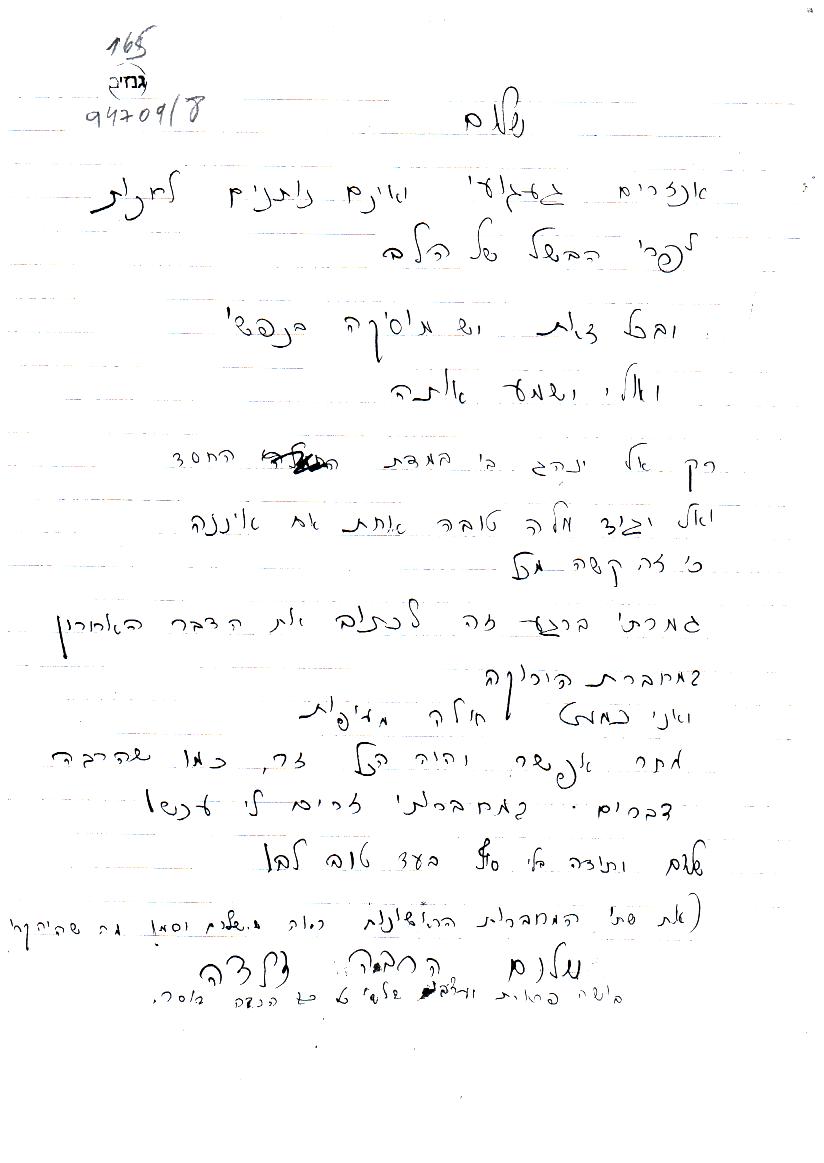 165
גנזים
94709/8
שלום
אכזרים געגועי ואינם נותנים לחכות
לפרי הבשל של הלב
ובכל זאת יש מוסיקה בנפשי
ואולי ישמע אותה
רק אל ינהג בי במדת החסד
ואל יגיד מלה טובה אחת אם איננה
כי זה קשה מכל
גמרתי ברגע זה לכתוב את הדבר האחרון
במחברת הירוקה
ואני כמעט חולה מעיפות
מחר אפשר, יהיה הכל זר, כמו שהרבה
דברים במחברותי זרים לי עכשו
שלום ותודה בלי סוף בעד טוב לבו
(את שתי המחברות הראשונות
שלום הרבה זלדה